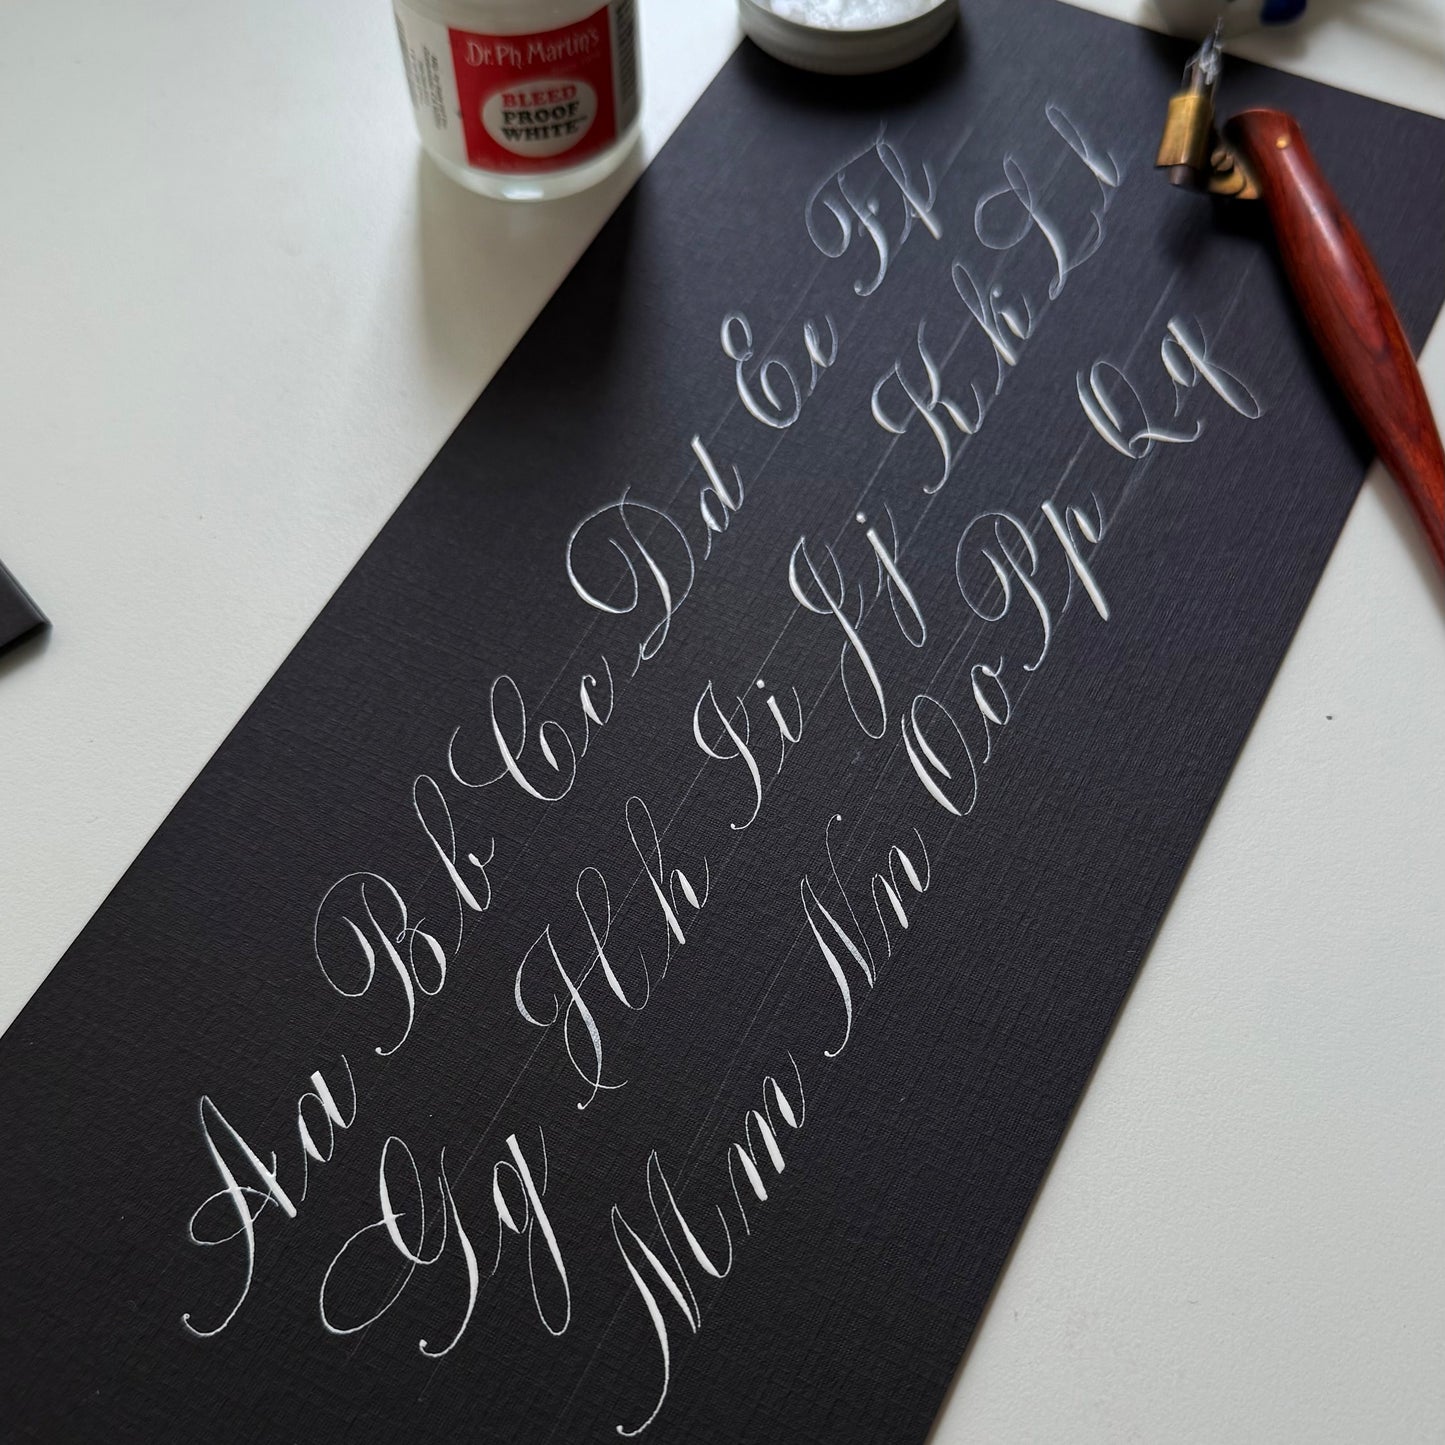 Dr. Ph. Martin's
BLEED
PROOF
WHITE™
Aa Bb Cc Dd Ee Ff
Gg Hh Ii Jj Kk Ll
Mm Nn Oo Pp Qq